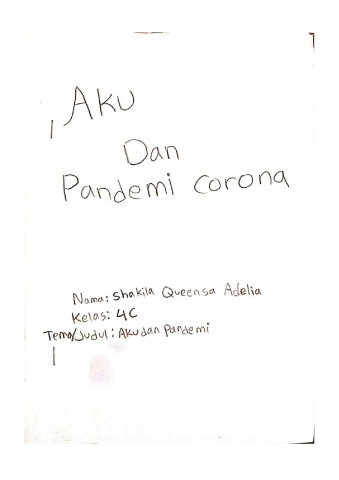 Aku
Dan
Pandemi corona
Nama: Shakila Queensa Adelia
Kelas: 4C
Tema/Judul: Aku dan Pandemi